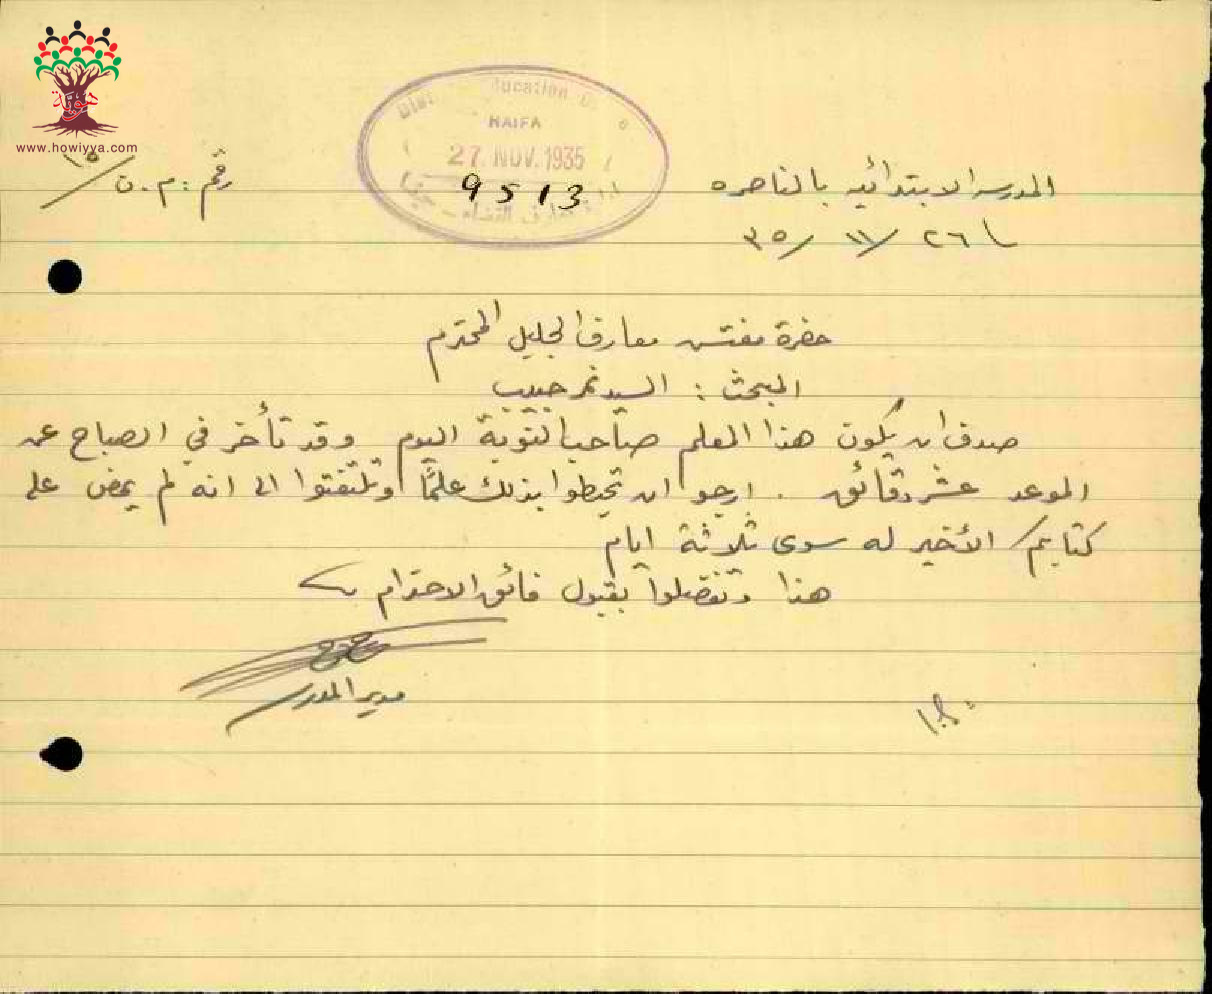 هوية
www.howiyya.com
District Education Office
HAIFA
27. NOV. 1935
9513
المدرسه الابتدائيه بالناصره
رقم : م . ن / ١٥
٢٦ / ١١ / ٣٥
حضرة مفتش معارف الجليل المحترم
المبحث : السيد نمر حبيب
صدف ان يكون هذا المعلم صاحب النوبة اليوم وقد تأخر في الصباح عن
الموعد عشر دقائق . ارجو ان تحيطوا بذلك علمًا وتلتفتوا الى انه لم يمض على
كتابكم الأخير له سوى ثلاثة ايام
هذا وتفضلوا بقبول فائق الاحترام
مدير المدرسه